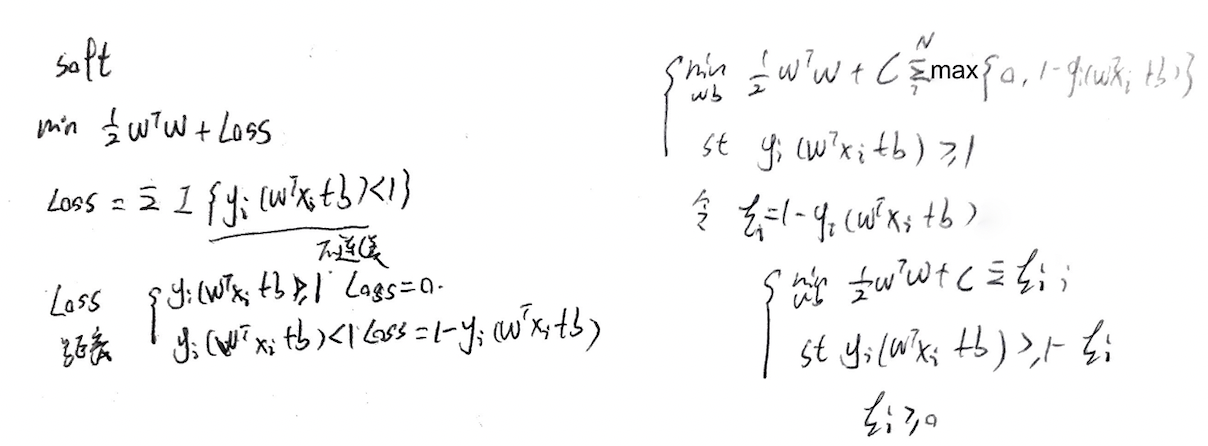 soft
min 1/2 wᵀw + Loss
Loss = Σ I {yᵢ (wᵀxᵢ + b) < 1}
不连续
Loss { yᵢ (wᵀxᵢ + b) ≥ 1 Loss = 0.
距离 yᵢ (wᵀxᵢ + b) < 1 Loss = 1 - yᵢ (wᵀxᵢ + b)
{ min w b 1/2 wᵀw + C Σᵢᴺ max{0, 1 - yᵢ(wᵀxᵢ + b)}
st yᵢ (wᵀxᵢ + b) ≥ 1
令 ξᵢ = 1 - yᵢ (wᵀxᵢ + b)
{ min w b 1/2 wᵀw + C Σ ξᵢ ;
st yᵢ (wᵀxᵢ + b) ≥ 1 - ξᵢ
ξᵢ ≥ 0